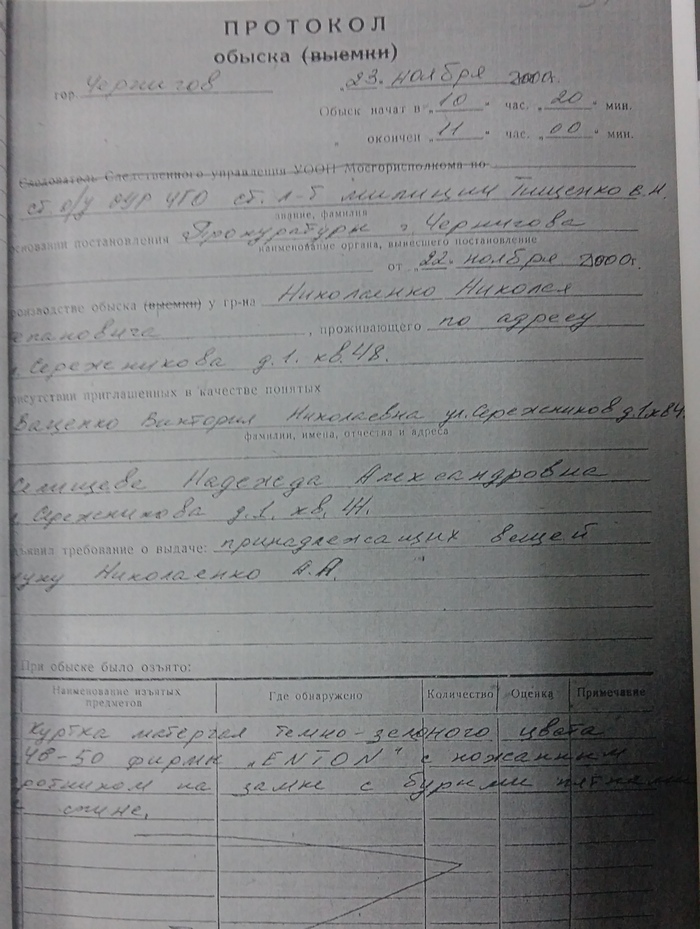 ПРОТОКОЛ
обыска (выемки)
гор. Чернигов 23. ноября 2000г.
Обыск начат в „10“ час. „20“ мин.
„ окончен „11“ час. „00“ мин.
Следователь Следственного управления УООП Мосгорисполкома по
ст. о/у ОУР ЧГО ст. л-т милиции Тищенко В.Н.
звание, фамилия
основании постановления Прокуратуры г. Чернигова
наименование органа, вынесшего постановление
от „22“ ноября 2000г.
роизводстве обыска (выемки) у гр-на Николаенко Николая
епановича , проживающего по адресу
. Сережникова д.1. кв.48.
рисутствии приглашенных в качестве понятых
Ващенко Виктория Николаевна ул.Сережников д.1 кв 84.
фамилии, имена, отчества и адреса
Селищева Надежда Александровна
. Сережникова д.1. кв. 44.
ъявил требование о выдаче: принадлежащих вещей
уку Николаенко А.А.
При обыске было изъято:
Наименование изъятых предметов Где обнаружено Количество Оценка Примечание
Куртка материал темно-зеленого цвета
48-50 фирмы „ENTON“ с кожанным
ротником на замке с бурыми пятнами
спине.